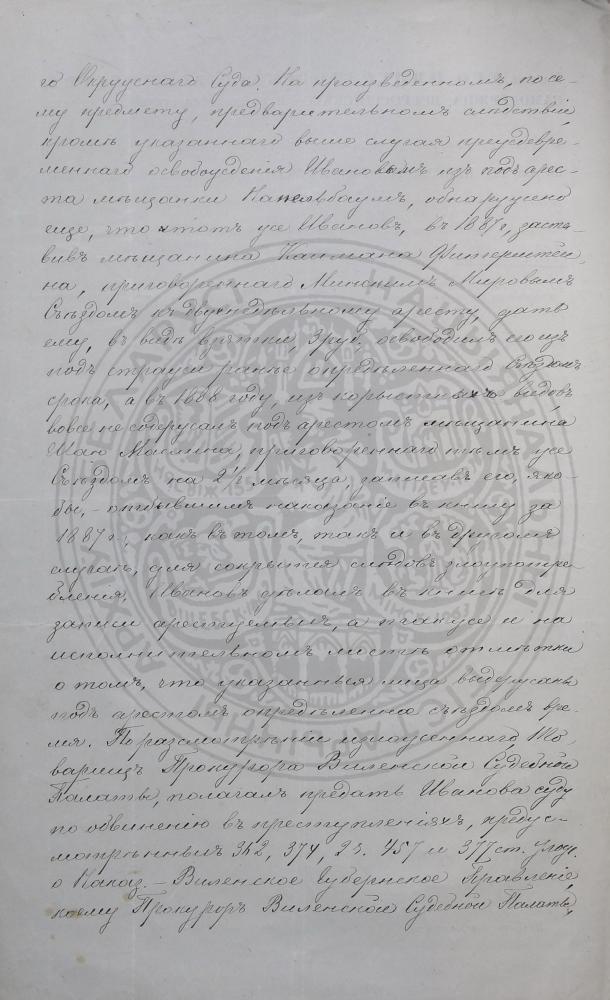 го Окружнаго Суда. На произведенномъ, по се-
му предмету, предварительномъ слѣдствіи,
кромѣ указаннаго выше случая преждевре-
меннаго освобожденія Ивановымъ изъ подъ арес-
та мѣщанки Кацельбаумъ, обнаружено
еще, что этотъ же Ивановъ, въ 1887 г, заста-
вивъ мѣщанина Каимана Финерштей-
на, приговореннаго Минскимъ Мировымъ
Съѣздомъ къ двухнедѣльному аресту, дать
ему, въ видѣ взятки, 3 руб, освободилъ его изъ
подъ стражи ранѣе опредѣленнаго Съѣздомъ
срока, а въ 1888 году, изъ корыстныхъ видовъ
вовсе не содержалъ подъ арестомъ мѣщанина
Шаю Маклина, приговореннаго тѣмъ же
Съѣздомъ на 2½ мѣсяца, записавъ его, яко-
бы, - отбывшимъ наказаніе въ книгу за
1887 г., какъ въ томъ, такъ и въ другомъ
случаѣ, для сокрытія слѣдовъ злоупотре-
бленія, Ивановъ дѣлалъ въ книгѣ для
записи арестуемыхъ, а также и на
исполнительномъ листѣ отмѣтки
о томъ, что указанныя лица выдержаны
подъ арестомъ опредѣленное съѣздомъ вре-
мя. По разсмотрѣніи изложеннаго, То-
варищъ Прокурора Виленской Судебной
Палаты, полагалъ предать Иванова суду
по обвиненію въ преступленіяхъ, предус-
мотрѣнныхъ 362, 374, 2 ч. 457 и 377 ст. Улож.
о Наказ. - Виленское Губернское Правленіе,
коему Прокуроръ Виленской Судебной Палаты,